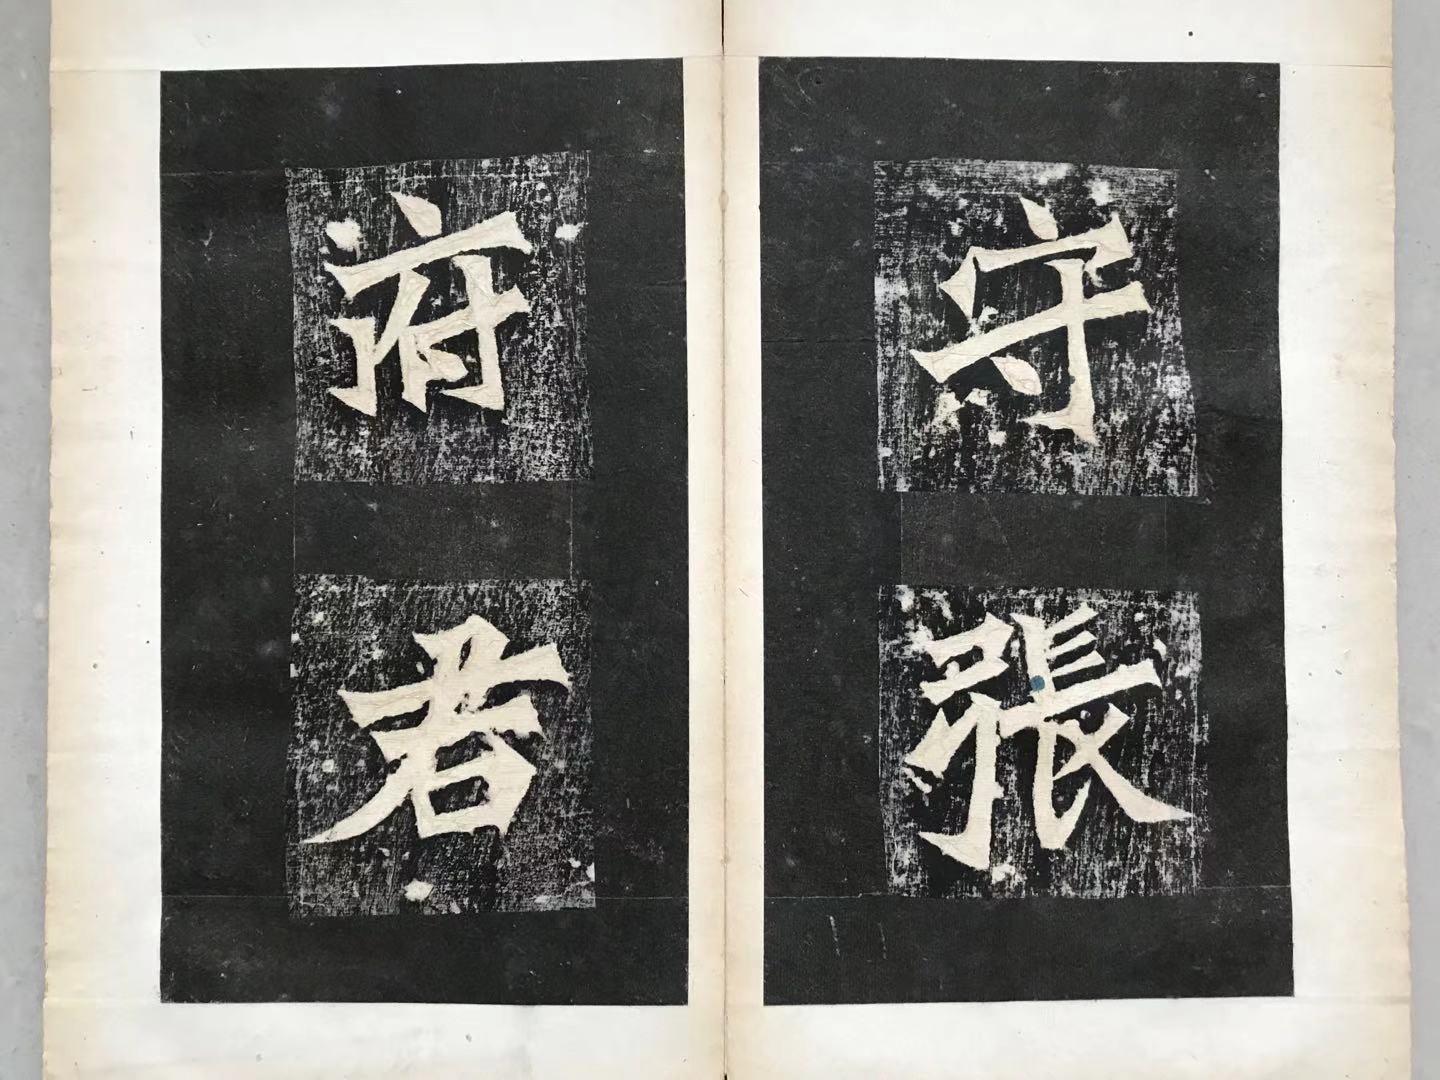 守張
府君